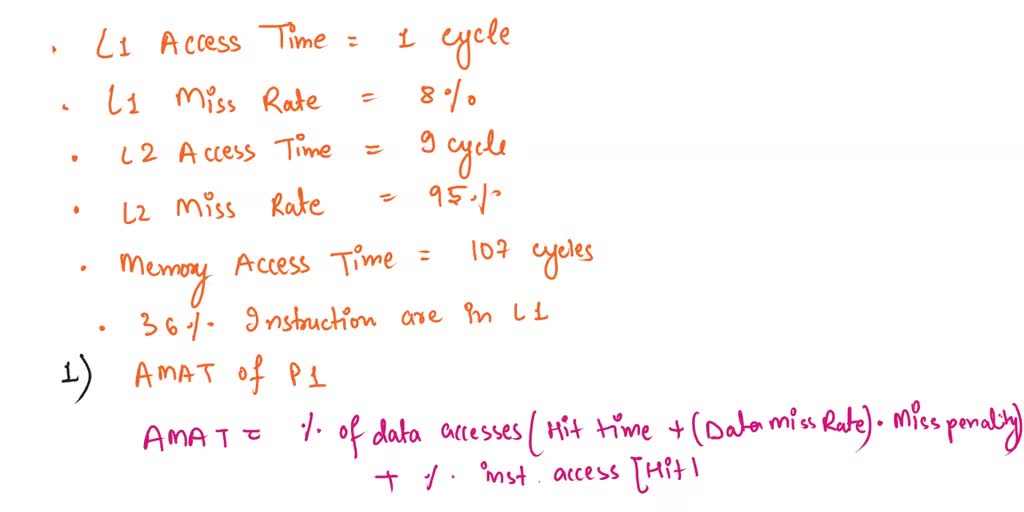 · L1 Access Time = 1 cycle
· L1 Miss Rate = 8%
· L2 Access Time = 9 cycle
· L2 Miss Rate = 95%
· Memory Access Time = 107 cycles
· 36% Instruction are in L1
1) AMAT of P1
AMAT = % of data accesses (Hit time + (Data miss Rate) · Miss penality)
+ % inst. access [Hit)